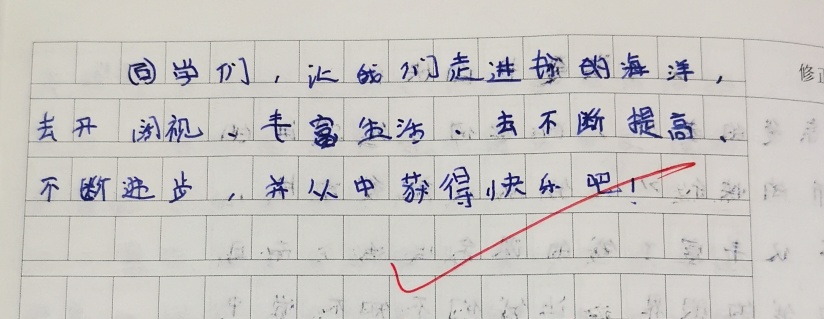 同学们，让我们走进球的海洋，
去开阔视、丰富生活、去不断提高、
不断进步，并从中获得快乐吧！
修正